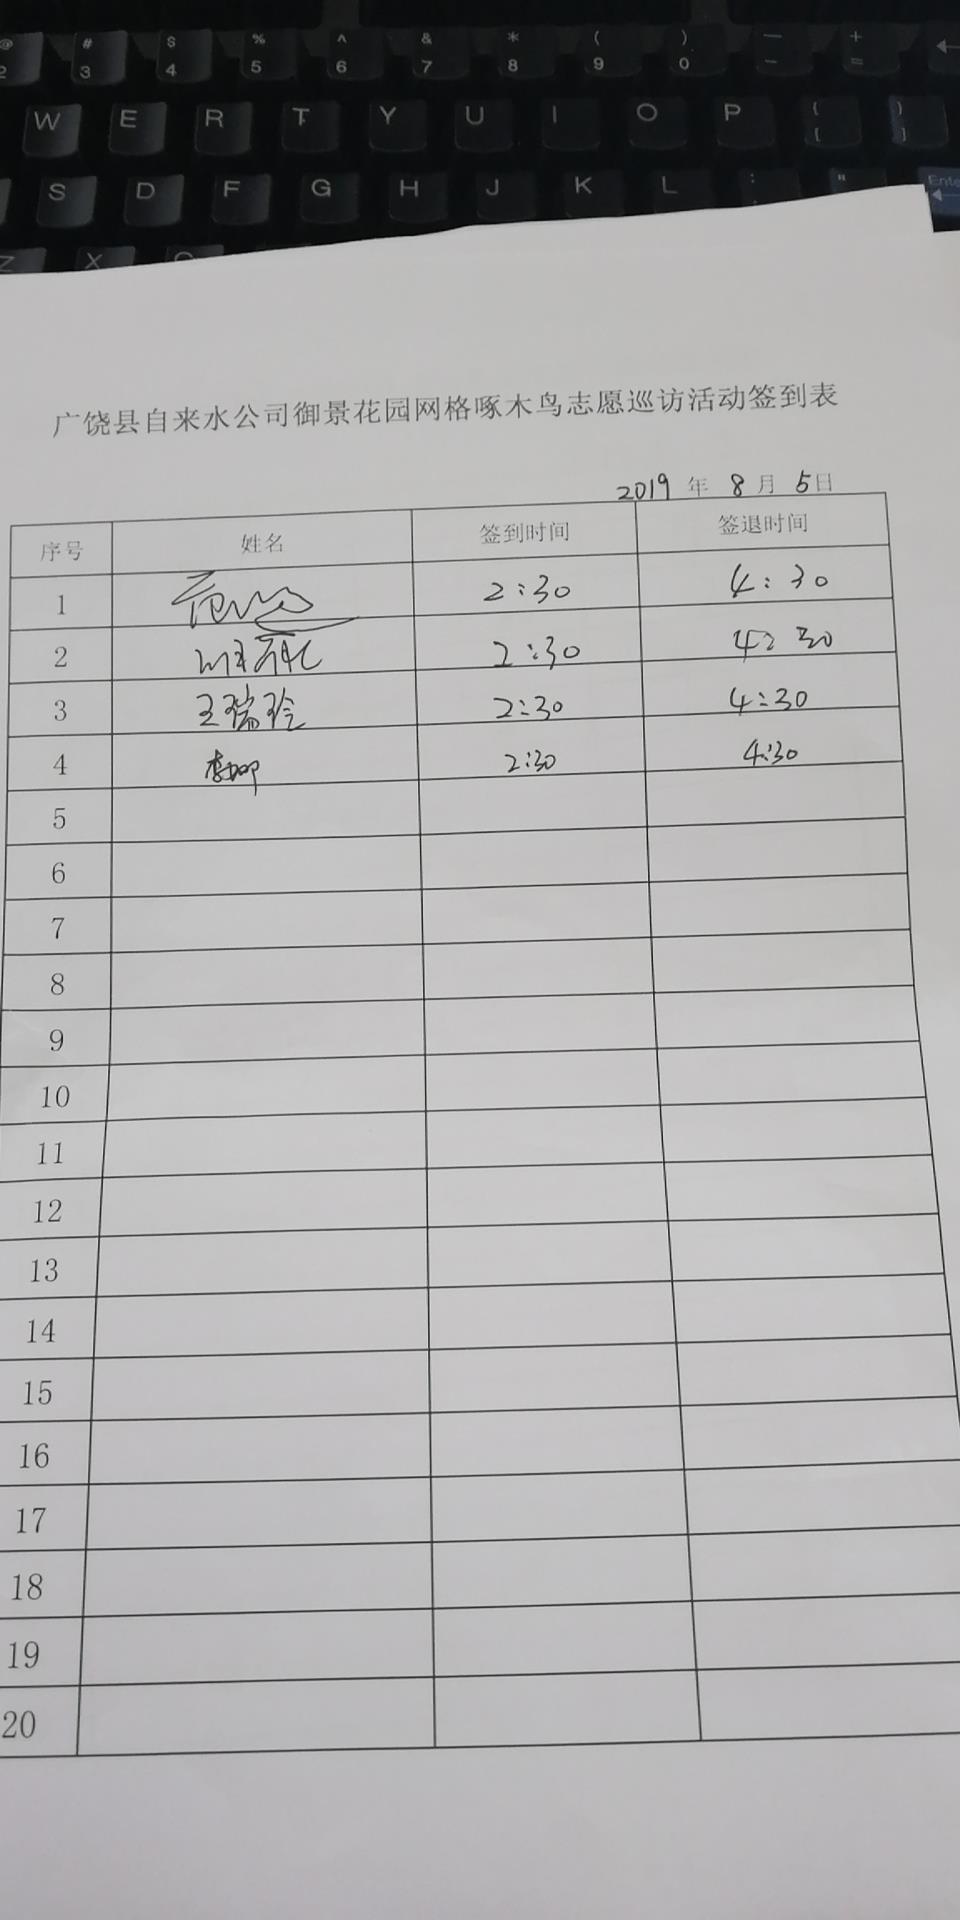 @ # $ % ^ & * ( ) — +
2 3 4 5 6 7 8 9 0 - =
W E R T Y U I O P { }
[ ]
S D F G H J K L : "
Enter
Z X C
广饶县自来水公司御景花园网格啄木鸟志愿巡访活动签到表
2019 年 8 月 5日
序号 姓名 签到时间 签退时间
1 2:30 4:30
2 2:30 4:30
3 王瑞玲 2:30 4:30
4 2:30 4:30
5
6
7
8
9
10
11
12
13
14
15
16
17
18
19
20